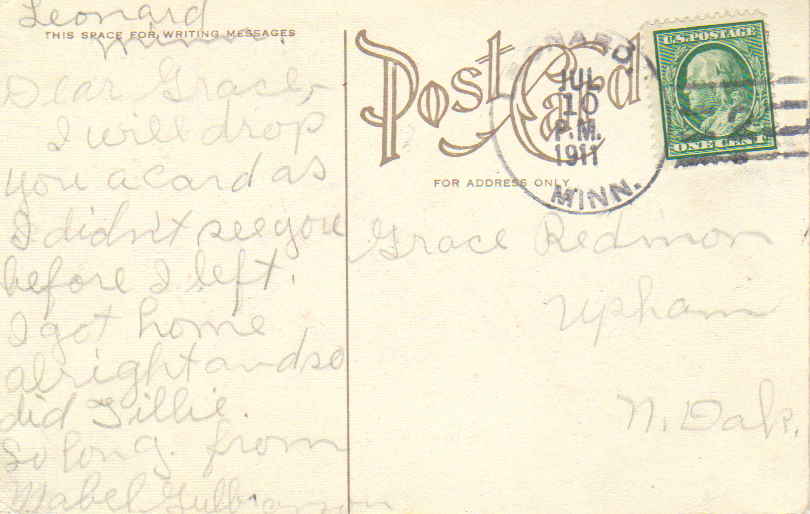 Leonard
Minn.
THIS SPACE FOR WRITING MESSAGES
Dear Grace,
I will drop
you a card as
I didn't see you
before I left.
I got home
alright and so
did Tillie.
So long. from
Mabel
Post Card
FOR ADDRESS ONLY
JUL
10
P.M.
1911
MINN.
U.S. POSTAGE
ONE CENT
Grace Redmon
Upham
N. Dak.